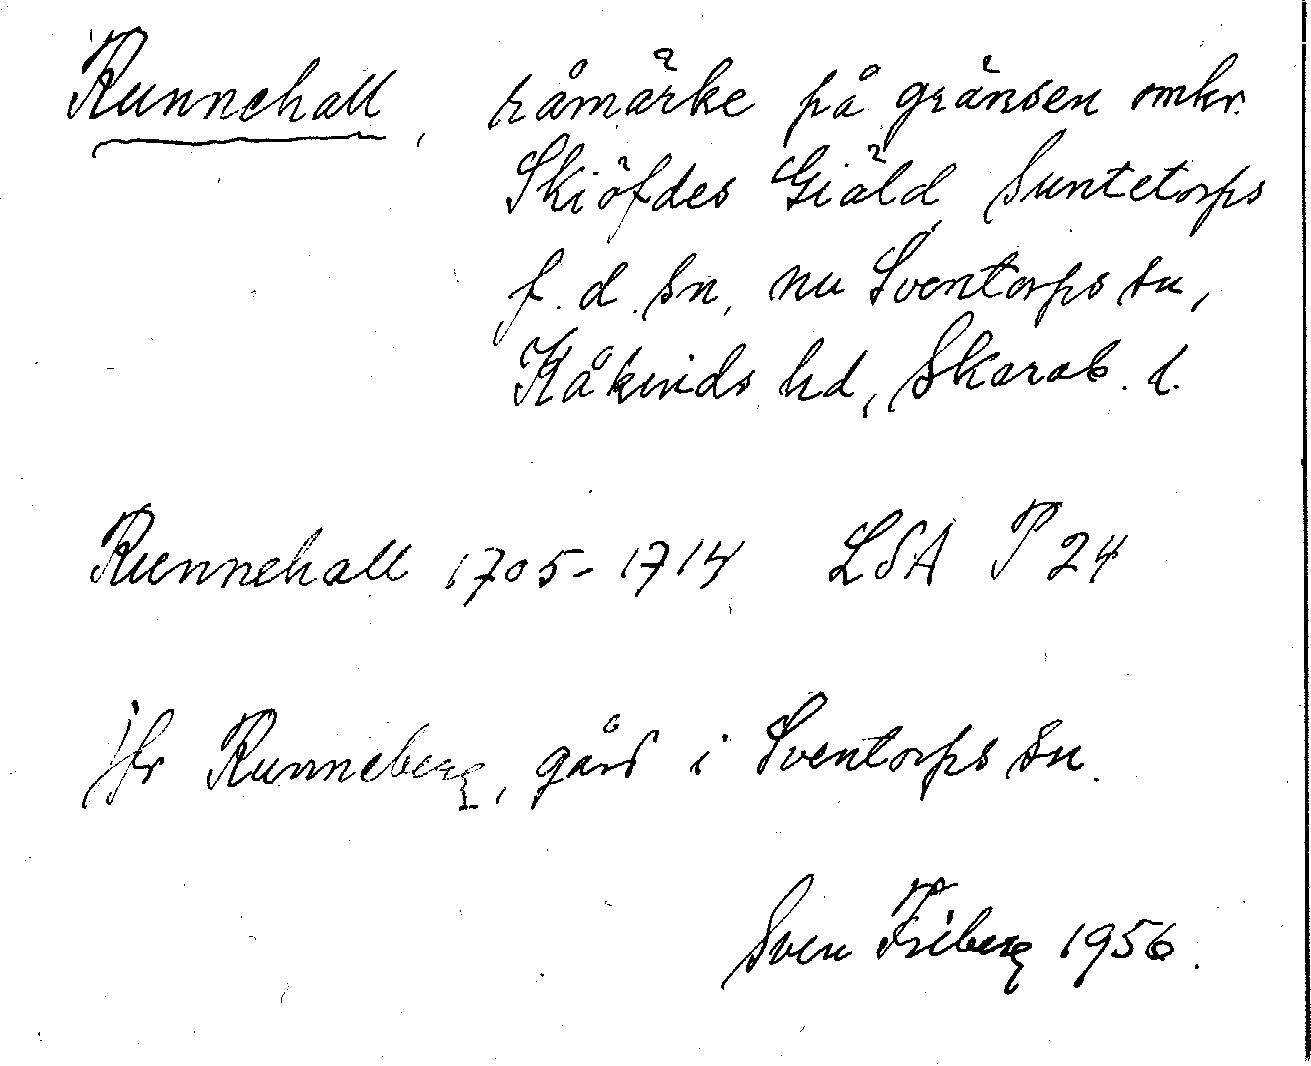 Runnehall, råmärke på gränsen omkr.
Skiöfdes Giäld, Suntetorps
f. d. sn, nu Sventorps sn,
Kåkinds hd, Skarab. l.
Runnehall 1705-1714 LSA P 24
Jfr Runneberg, gård i Sventorps sn.
Sven Friberg 1956.